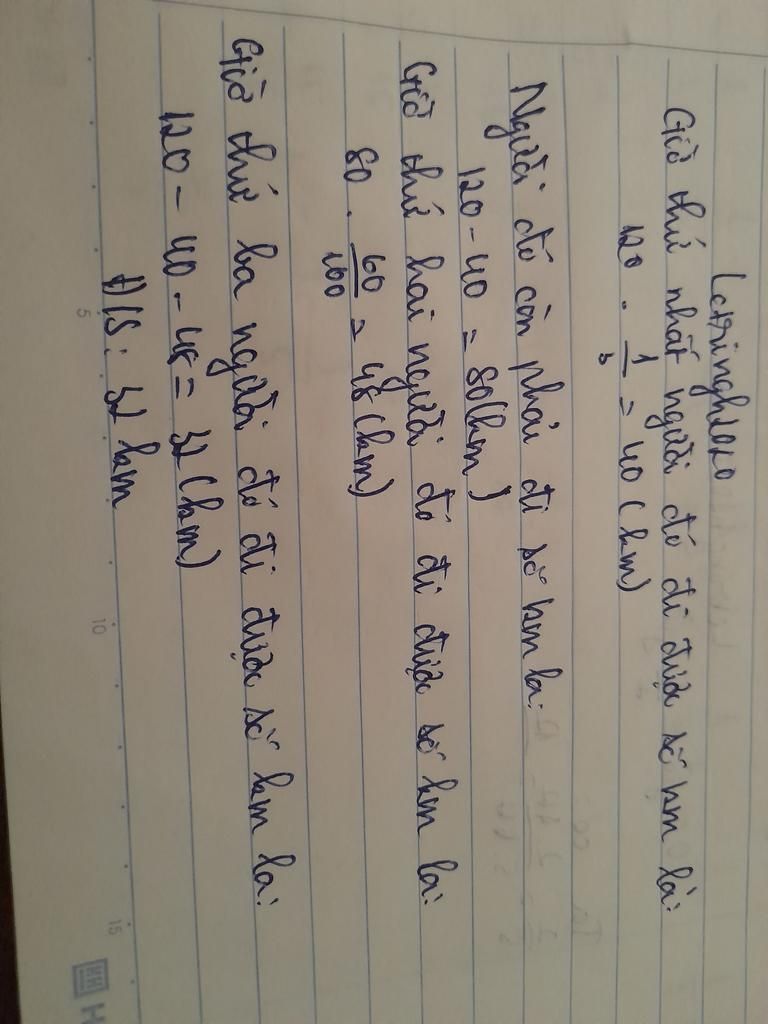 Giờ thứ nhất người đó đi được số km là:
120 . 1/3 = 40 (km)
Người đó còn phải đi số km là:
120 - 40 = 80 (km)
Giờ thứ hai người đó đi được số km là:
80 . 60/100 = 48 (km)
Giờ thứ ba người đó đi được số km là:
120 - 40 - 48 = 32 (km)
Đ/S: 32 km
5
10
15